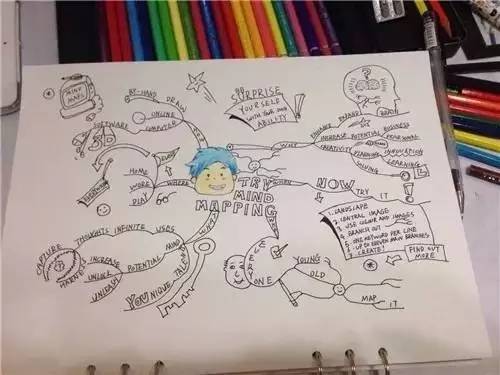 MIND
MAPS
BY-HAND DRAW
ONLINE
SOFTWARE COMPUTER
HOW
SURPRISE
YOURSELF
WITH YOUR OWN
ABILITY!
WHY
ENHANCE EXPAND BRAIN
INCREASE POTENTIAL BUSINESS
PERSONAL
CREATIVITY
PLANNING INNOVATION
LEARNING
HOME
WORK
PLAY
WHERE
GO
TRY
MIND
MAPPING
WHEN
NOW
TRY IT
1. LANDSCAPE
2. CENTRAL IMAGE
3. USE COLOUR AND IMAGES
4. BRANCH OUT
5. ONE KEYWORD PER LINE
6. UP TO ELEVEN MAIN BRANCHES
7. CREATE!
FIND OUT
MORE
WHAT
THOUGHTS INFINITE USES
MIND
CAPTURE
HARNESS
INCREASE
UNLOCK POTENTIAL
UNLEASH
YOUNIQUE TALENT
EVERYONE
YOUNG
OLD
MAP IT